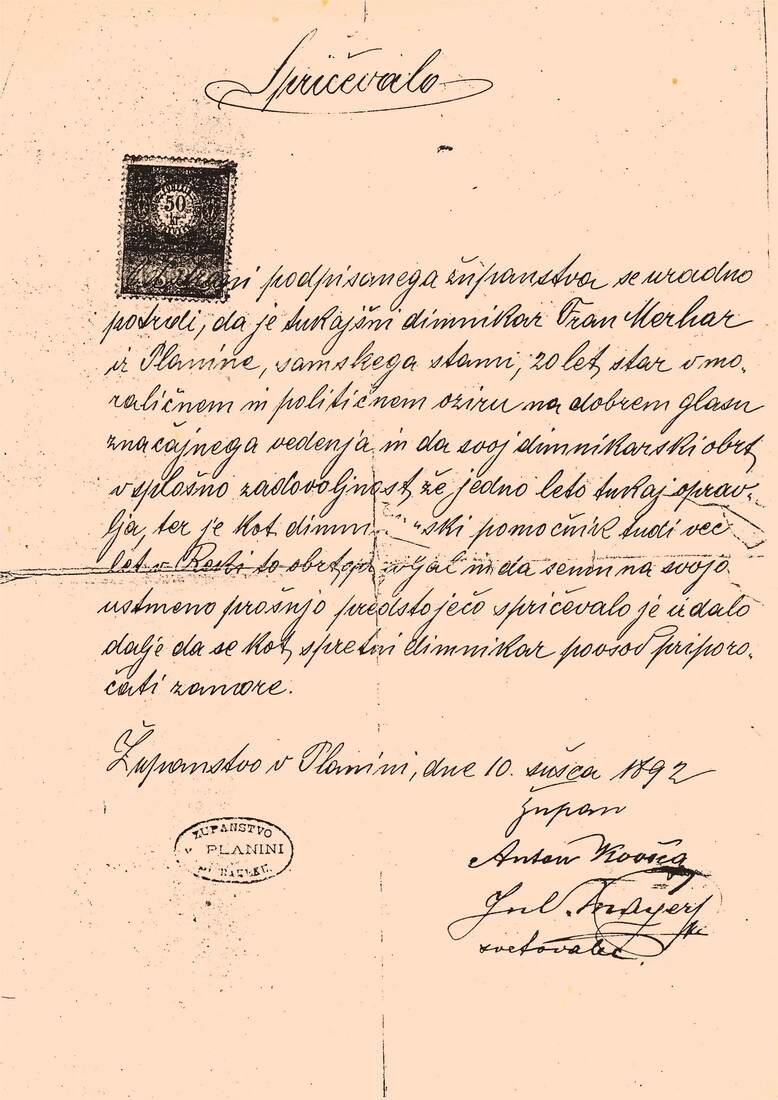 Spričevalo
50
kr.
podpisanega županstva se uradno
potrdi, da je tukajšni dimnikar Fran Merhar
iz Planine, samskega stanu, 20 let star v mo-
raličnem in političnem oziru na dobrem glasu
značajnega vedenja in da svoj dimnikarski obrt
v splošno zadovoljnost že jedno leto tukaj oprav-
lja, ter je kot pomočnik tudi več
let v Reki to obrt in da se mu na svojo
ustmeno prošnjo predstoječo spričevalo je izdalo
dalje da se kot spretni dimnikar povsod priporo-
čati zamore.
Županstvo v Planini, dne 10. sušca 1892
župan
ŽUPANSTVO
v PLANINI
Anton Kovšca
Jul.
svetovalec.